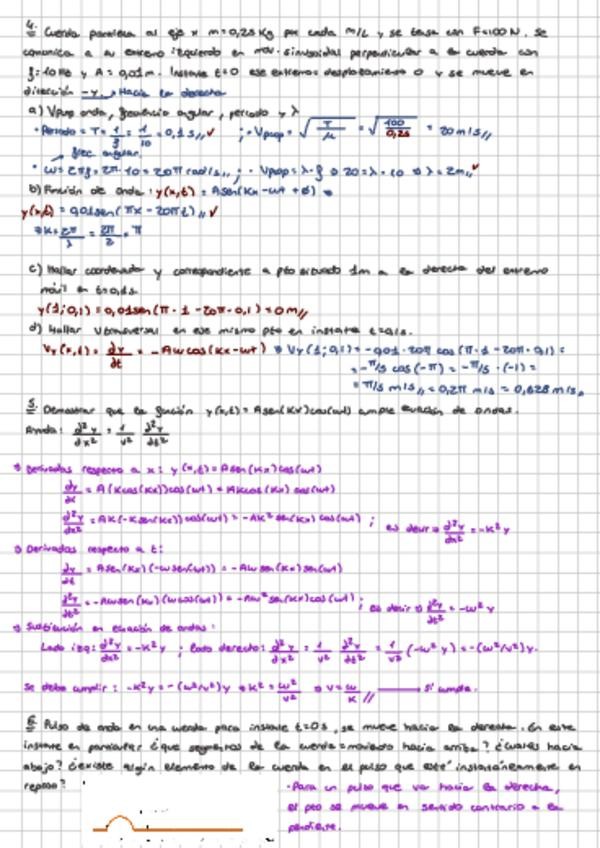 4. Cuerda paralela al eje x m=0,25 Kg por cada m/L y se tensa con F=100N. Se
comunica a su extremo izquierdo en mov. sinusoidal perpendicular a la cuerda con
f=10Hz y A=0,01m. Instante t=0 ese extremo: desplazamiento 0 y se mueve en
dirección -y. Hacia la derecha
a) Vprop onda, frecuencia angular, período y λ
· Período = T = 1/f = 1/10 = 0,1 s // ✓ ; · Vprop = √(T/μ) = √(100/0,25) = 20 m/s //
frec angular
· ω=2πf = 2π·10 = 20π rad/s // ; · Vprop = λ·f → 20=λ·10 → λ=2m // ✓
b) Función de onda: y(x,t) = Asen(Kx-ωt+φ)
y(x,t) = 0,01sen(πx-20πt) // ✓
K=2π/λ = 2π/2 = π
c) Hallar coordenada y correspondiente a pto situado 1m a la derecha del extremo
móvil en t=0,1s.
y(1;0,1) = 0,01sen(π·1-20π·0,1) = 0m //
d) Hallar Vtransversal en ese mismo pto en instante t=0,1s.
Vy(x,t) = dy/dt = -Aωcos(Kx-ωt) → Vy(1;0,1) = -0,01·20π cos(π·1-20π·0,1) =
= -π/5 cos(-π) = -π/5·(-1) =
= π/5 m/s // = 0,2π m/s = 0,628 m/s //
5. Demostrar que la función y(x,t) = Asen(Kx)cos(ωt) cumple ecuación de ondas.
Ayuda: d²y/dx² = 1/v² d²y/dt²
Derivadas respecto a x: y(x,t) = Asen(Kx)cos(ωt)
dy/dx = A(Kcos(Kx))cos(ωt) = AKcos(Kx)cos(ωt)
d²y/dx² = AK(-Ksen(Kx))cos(ωt) = -AK²sen(Kx)cos(ωt) ; es decir → d²y/dx² = -K²y
Derivadas respecto a t:
dy/dt = Asen(Kx)(-ωsen(ωt)) = -Aωsen(Kx)sen(ωt)
d²y/dt² = -Aωsen(Kx)(ωcos(ωt)) = -Aω²sen(Kx)cos(ωt) ; es decir → d²y/dt² = -ω²y
Sustitución en ecuación de ondas:
Lado izq: d²y/dx² = -K²y ; lado derecho: d²y/dx² = 1/v² d²y/dt² = 1/v² (-ω²y) = -(ω²/v²)y.
Se debe cumplir: -K²y = -(ω²/v²)y → K² = ω²/v² → v = ω/K // Sí cumple.
6. Pulso de onda en una cuerda para instante t=0s, se mueve hacia la derecha. En este
instante en particular ¿que segmentos de la cuerda = moviendo hacia arriba? ¿cuáles hacia
abajo? ¿existe algún elemento de la cuerda en el pulso que esté instantáneamente en
reposo?
·Para un pulso que va hacia la derecha,
el pto se mueve en sentido contrario a la
pendiente.